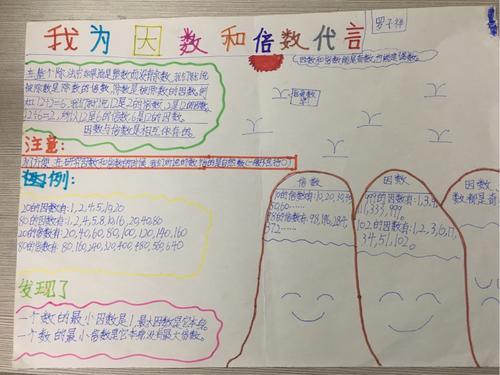 我为因数和倍数代言
罗子祥
(因数和倍数能是奇数,也能是偶数。
在整个除法中如果商是整数而没有余数,我们就说
被除数是除数的倍数,除数是被除数的因数。例
如12÷2=6,我们就说12是2的倍数,2是12的因数。
12÷6=2,所以12是6的倍数,6是12的因数。
因数与倍数是相互依存的。
注意:
为了方便,在研究因数和倍数的时候,我们所说的数指的是自然数(一般不包括0)
举例:
20的因数有:1,2,4,5,10,20
80的因数有:1,2,4,5,8,10,16,20,40,80
20的倍数有:20,40,60,80,100,120,140,160
80的倍数有:80,160,240,320,400,480,560,640
发现了
一个数的最小因数是1,最大因数是它本身。
一个数的最小倍数是它本身没有最大倍数。
倍数
10的倍数有:10,20,30,40
372……
因数
99的因数有:1,3,9,
11,33,99,。
102的因数有:1,2,3,6,17,
34,51,102。
因数